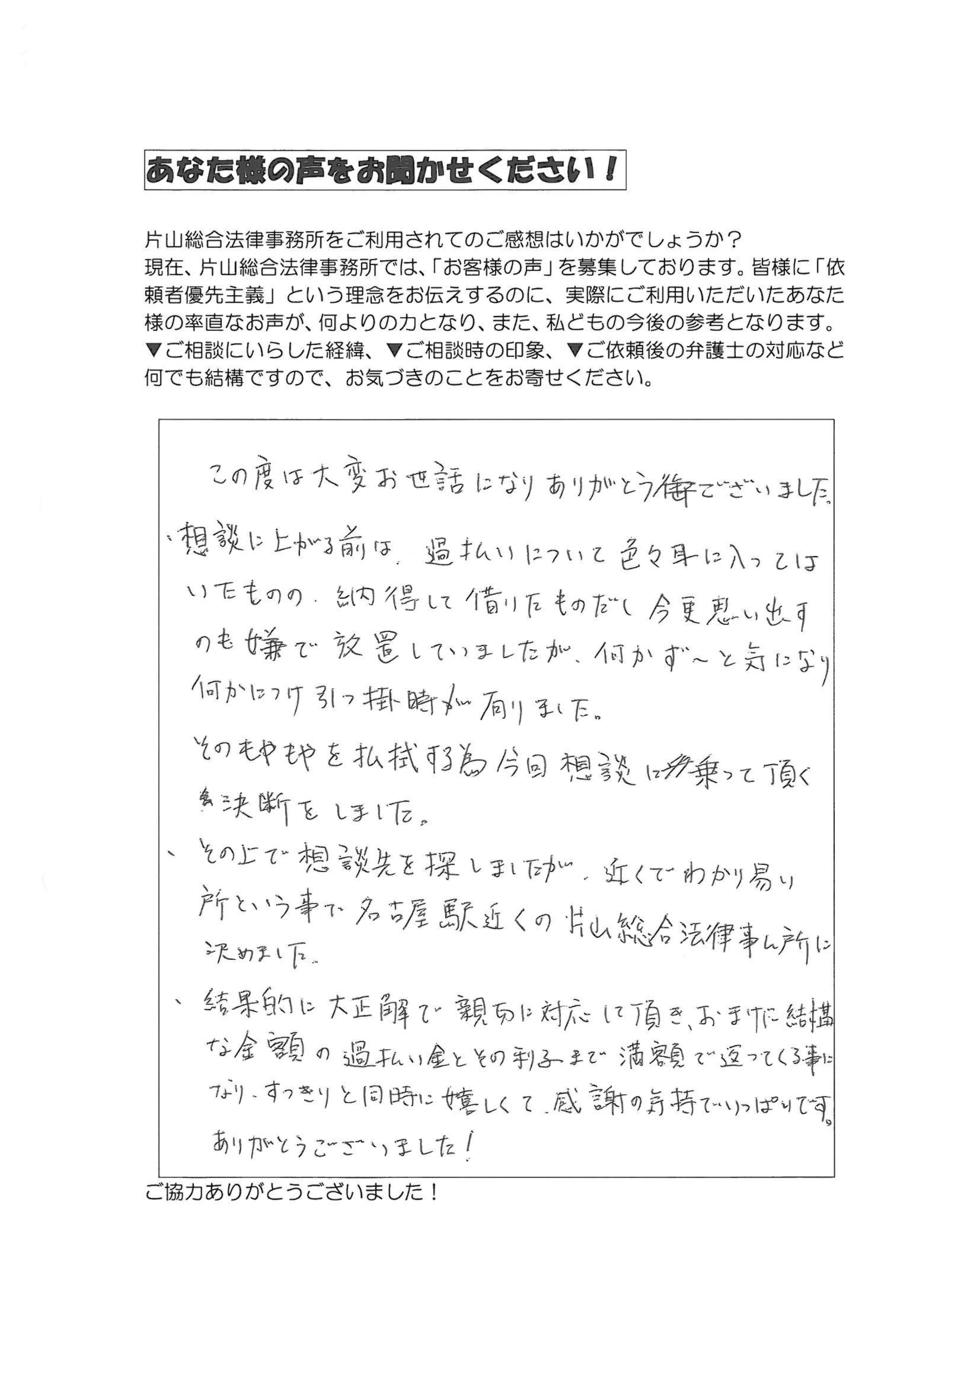 あなた様の声をお聞かせください！
片山総合法律事務所をご利用されてのご感想はいかがでしょうか？
現在、片山総合法律事務所では、「お客様の声」を募集しております。皆様に「依
頼者優先主義」という理念をお伝えするのに、実際にご利用いただいたあなた
様の率直なお声が、何よりの力となり、また、私どもの今後の参考となります。
▼ご相談にいらした経緯、▼ご相談時の印象、▼ご依頼後の弁護士の対応など
何でも結構ですので、お気づきのことをお寄せください。
この度は大変お世話になりありがとう御座ございました。
、想談に上がる前は、過払いについて色々耳に入っては
いたものの、納得して借りたものだし今更思い出す
のも嫌で放置していましたが、何かず～と気になり
何かにつけ引っ掛時が有りました。
そのもやもやを払拭する為今回想談に乗って頂く
決断をしました。
、その上で想談先を探しましたが、近くでわかり易い
所という事で名古屋駅近くの片山総合法律事ム所に
決めました。
、結果的に大正解で親切に対応して頂き、おまけに結構
な金額の過払い金とその利子まで満額で返ってくる事に
なり、すっきりと同時に嬉しくて、感謝の気持でいっぱいです。
ありがとうございました！
ご協力ありがとうございました！